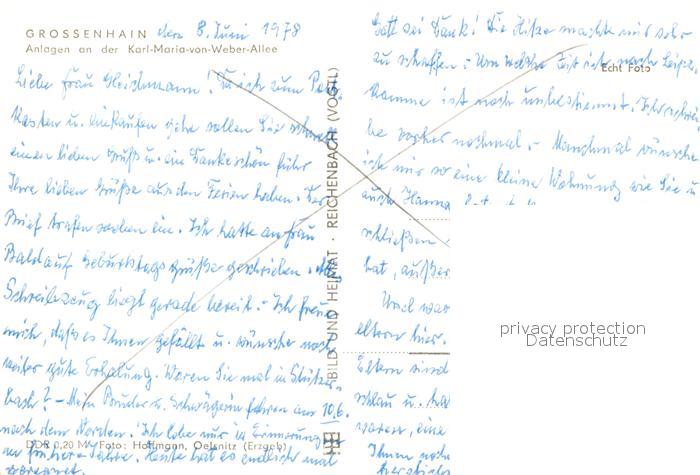 GROSSENHAIN den 8. Juni 1978
Anlagen an der Karl-Maria-von-Weber-Allee
Liebe Frau Fleischmann! Da ich zum Post-
kasten u. einkaufen gehe sollen Sie schnell
einen lieben Gruß u. ein Dankeschön für
Ihre lieben Grüße aus den Ferien haben. Der
Brief trafen soeben ein. Ich hatte an Frau
Baldauf Geburtstagsgrüße geschrieben.
Schreibzeug liegt gerade bereit. - Ich freue
mich, daß es Ihnen gefällt u. wünsche noch
weiter gute Erholung. Waren Sie mal in Stützer-
bach? - Mein Bruder u. Schwägerin fahren am 10.6.
nach dem Norden. Ich lebe nur in Erinnerung
an frühere Jahre. Heute hat es endlich mal
geregnet.
DDR 0,20 M Foto: Hoffmann, Oelsnitz (Erzgeb)
BILD UND HEIMAT · REICHENBACH (VOGTL)
Gott sei Dank! Die Hitze machte mir sehr
zu schaffen. - Um welche Zeit ich nach Leipz.
Echt Foto
komme ist noch unbestimmt. Ich schrei
be vorher nochmal. - Manchmal wünsche
ich mir so eine kleine Wohnung wie Sie u
auch Hanna
schließen
hat, außer
Und war
eltern hier.
Eltern sind
schlau u. ha
waren, eine
Ihnen noch
herzliche
privacy protection
Datenschutz